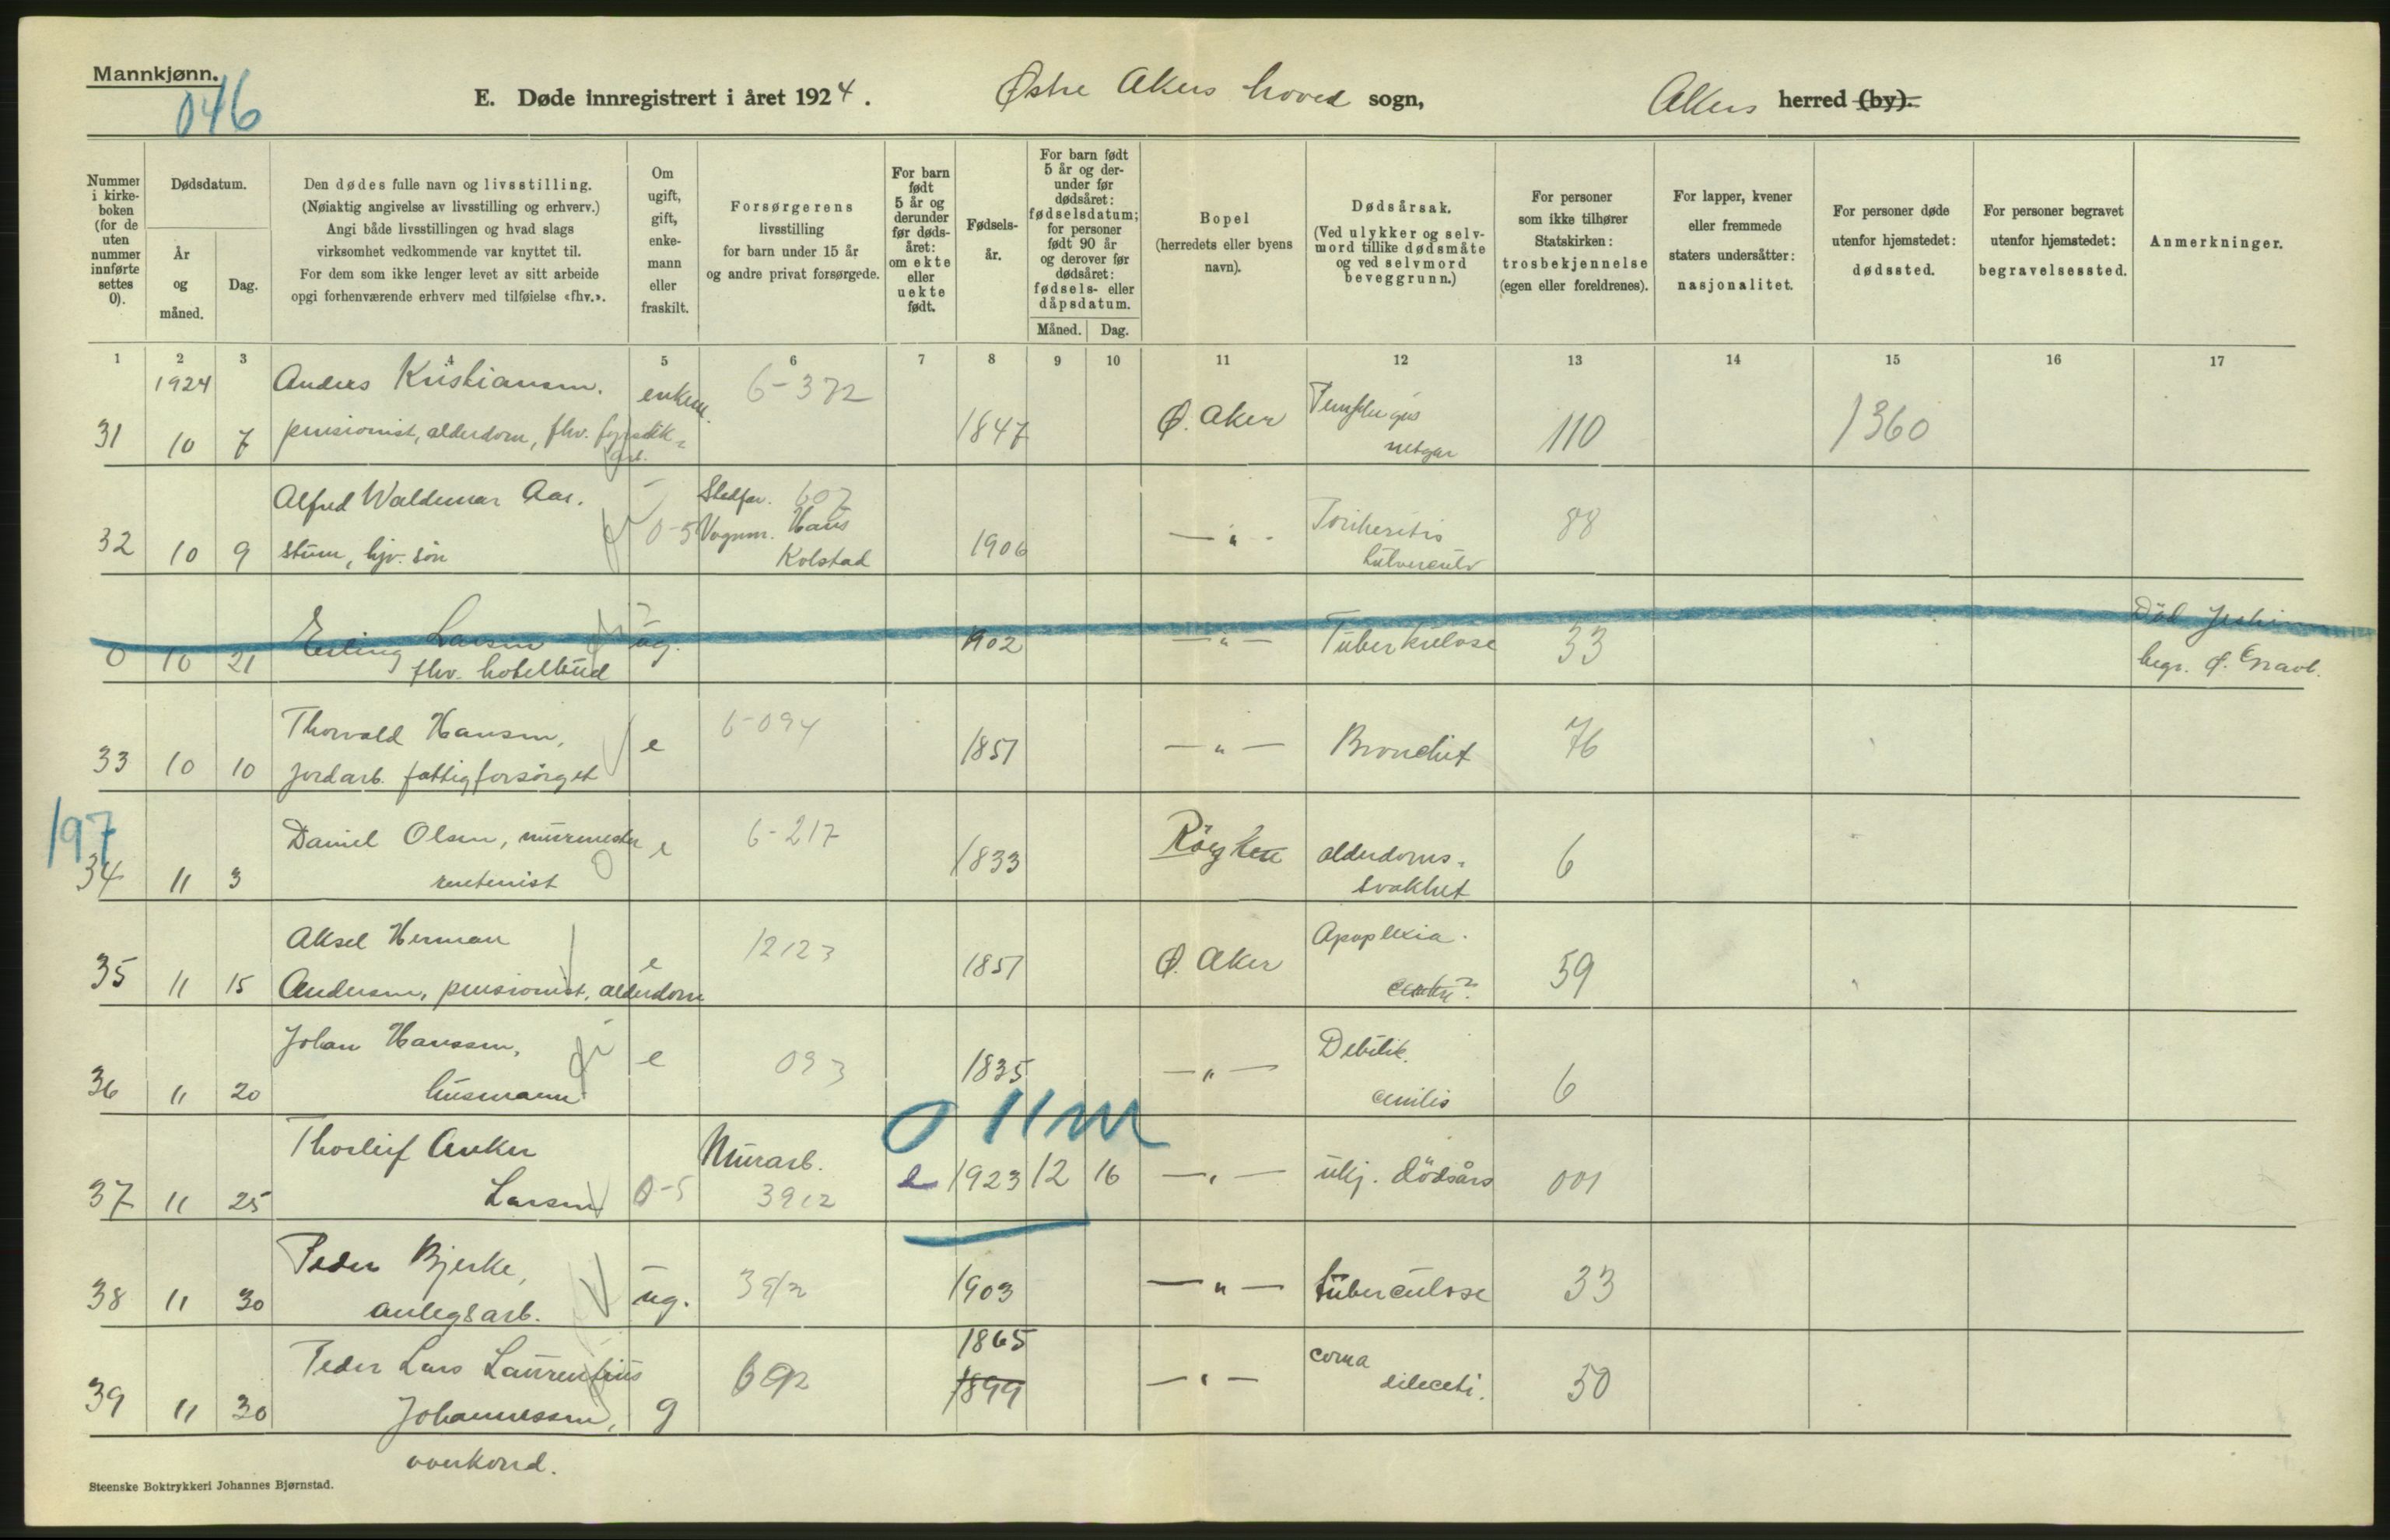 Mannkjønn.
046
E. Døde innregistrert i året 1924. Østre Akers hoved sogn, Akers herred (by).
Nummer i kirkeboken (for de uten nummer innførte settes 0).
Dødsdatum.
År og måned.
Dag.
Den dødes fulle navn og livsstilling.
(Nøiaktig angivelse av livsstilling og erhverv.)
Angi både livsstillingen og hvad slags
virksomhet vedkommende var knyttet til.
For dem som ikke lenger levet av sitt arbeide
opgi forhenværende erhverv med tilføielse «fhv.».
Om ugift, gift, enkemann eller fraskilt.
Forsørgerens
livsstilling
for barn under 15 år
og andre privat forsørgede.
For barn født 5 år og derunder før dødsåret: om ekte eller uekte født.
Fødselsår.
For barn født 5 år og derunder før dødsåret: fødselsdatum; for personer født 90 år og derover før dødsåret: fødsels- eller dåpsdatum.
Måned. Dag.
Bopel
(herredets eller byens
navn).
Dødsårsak.
(Ved ulykker og selvmord tillike dødsmåte og ved selvmord beveggrunn.)
For personer
som ikke tilhører
Statskirken:
trosbekjennelse
(egen eller foreldrenes).
For lapper, kvener
eller fremmede
staters undersåtter:
nasjonalitet.
For personer døde
utenfor hjemstedet:
dødssted.
For personer begravet
utenfor hjemstedet:
begravelsessted.
Anmerkninger.
1 2 3 4 5 6 7 8 9 10 11 12 13 14 15 16 17
1924 Anders Kristiansen. enkem. 6-372
31 10 7 pensionist, alderdom, fhv. fabrikk- 1847 Ø. Aker 110 1360
arb.
Alfred Waldemar Aas. Stedfar. 607
32 10 9 stum, hjv. søn 0-5 Vognm. Hans Kolstad 1906 — " - 88
Erling Larsen ug. 1902 — " — Tuberkulose 33 Død
0 10 21 fhv. hotellbud begr. Ø. Gravl.
Thorvald Hansen, e 6-094 1851 — " — Bronchit 76
33 10 10 jordarb. fattigforsørget
197
Daniel Olsen, murmester e 6-217 1833 Røyken alderdoms-
34 11 3 rentenist svakhet 6
Aksel Herman 12123 Apoplexia.
35 11 15 Andersen, pensionist, alderdom e 1851 Ø. Aker 59
Johan Hanssen, e 093 1835 — " — Debilit.
36 11 20 husmann 6
0 11 m
Thorleif Anker Murarb.
37 11 25 Larsen 0-5 3912 e 1923 12 16 — " — ukj. dødsårs 001
Peder Bjerke,
38 11 30 anlegsarb. ug. 39/2 1903 — " — tuberculose 33
Peder Lars Laurentius 692 1865 coma
39 11 30 Johannessen, g 1899 — " — 50
overkond.
Steenske Boktrykkeri Johannes Bjørnstad.